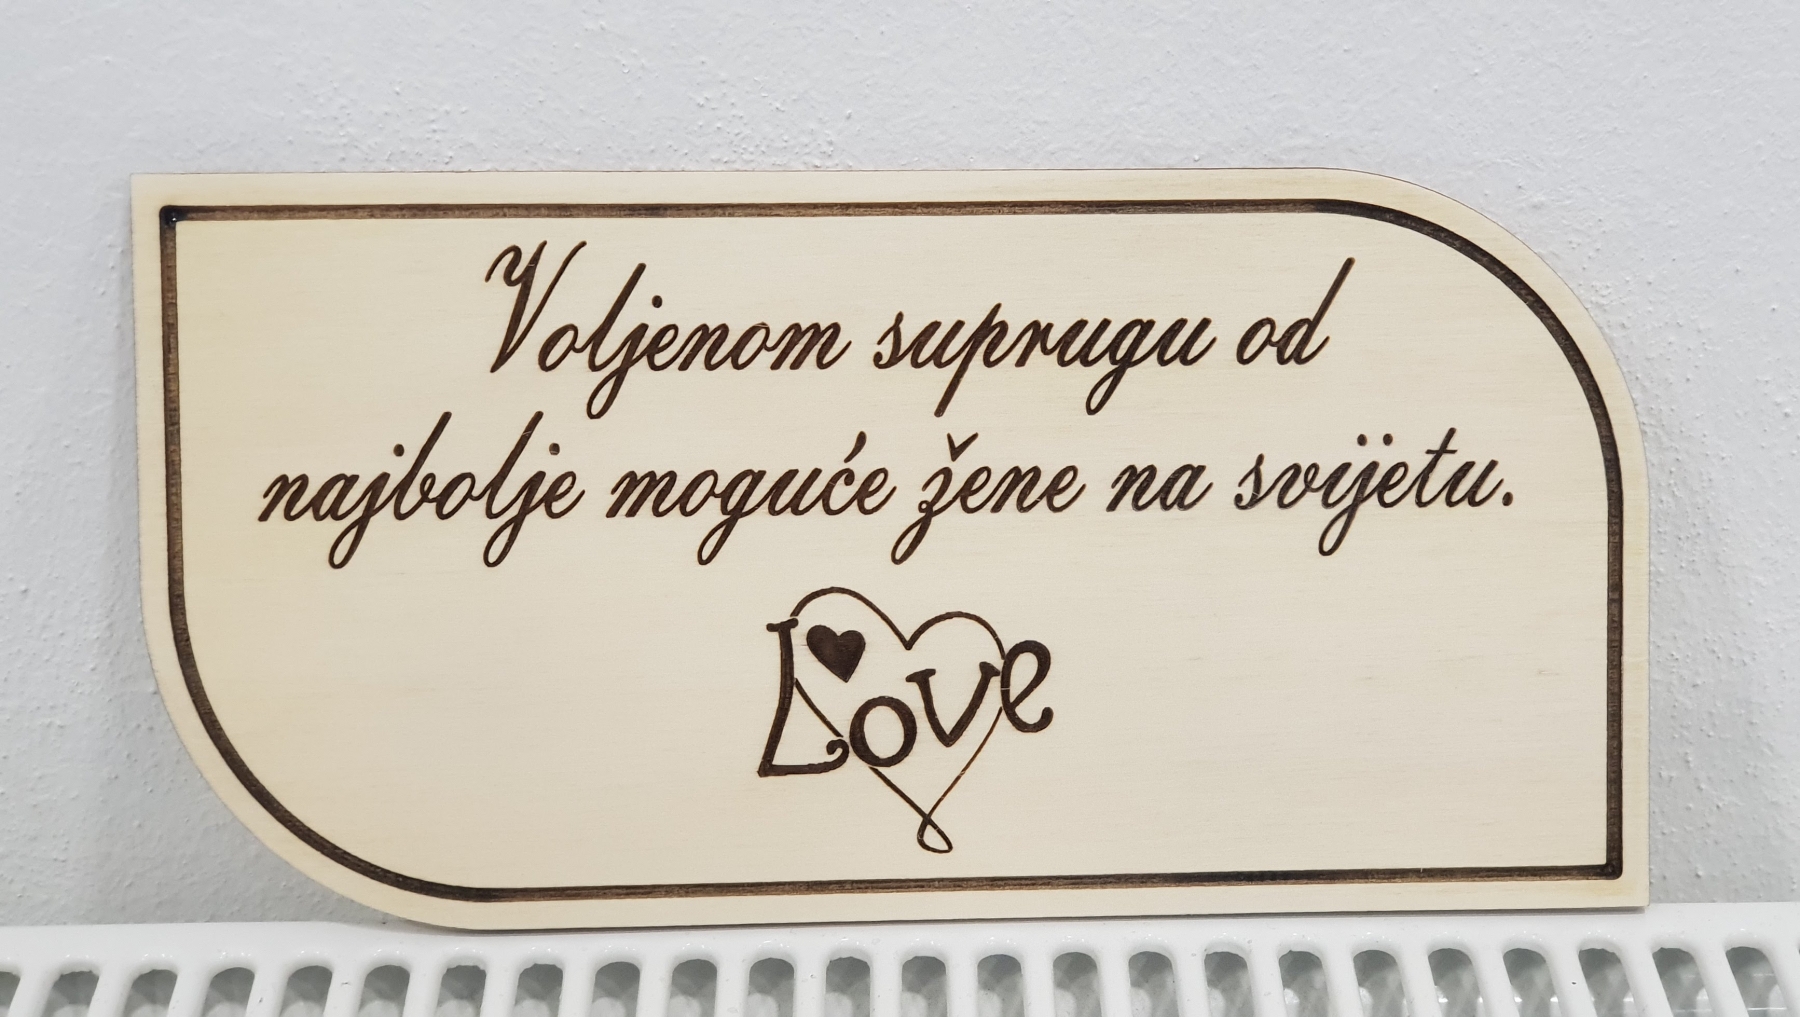 Voljenom suprugu od
najbolje moguće žene na svijetu.
Love